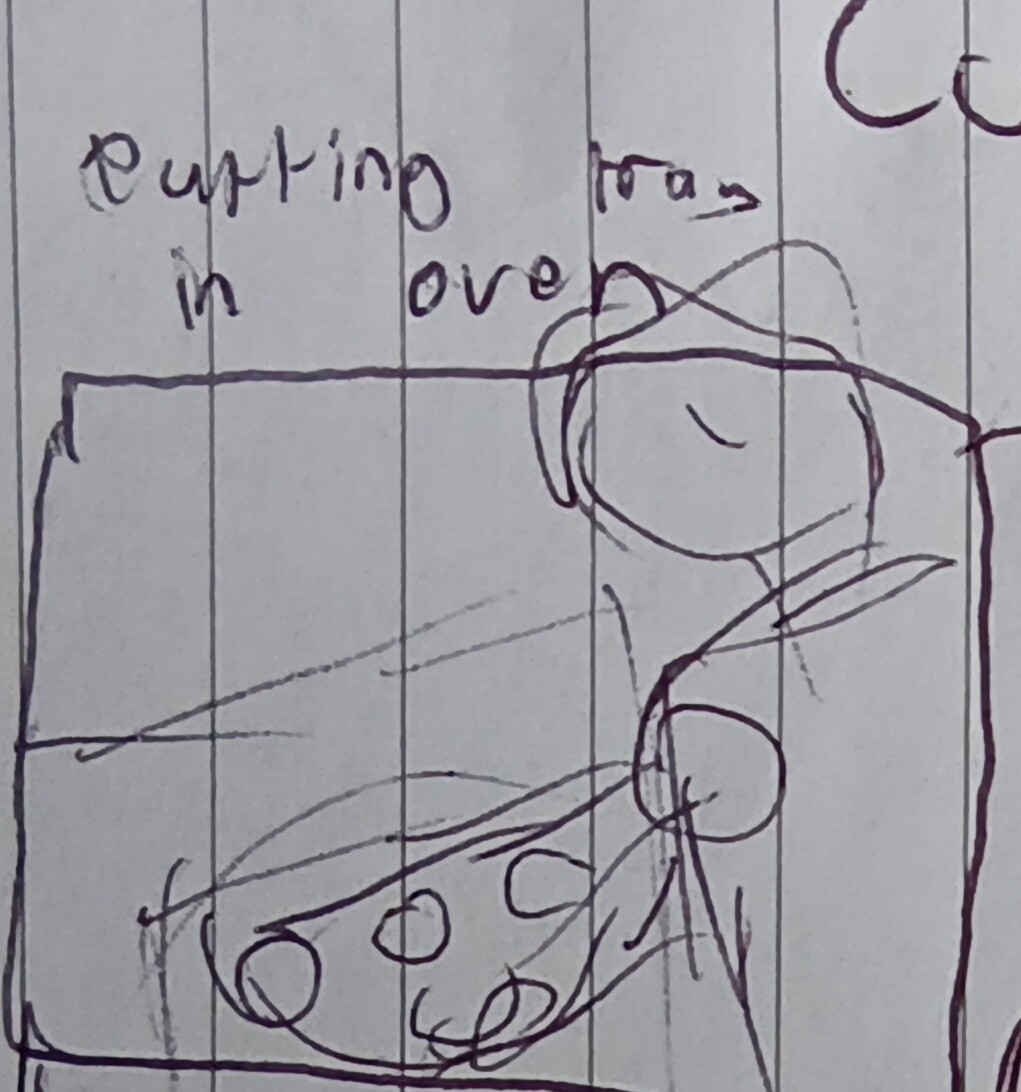 Co
putting tray
in oven